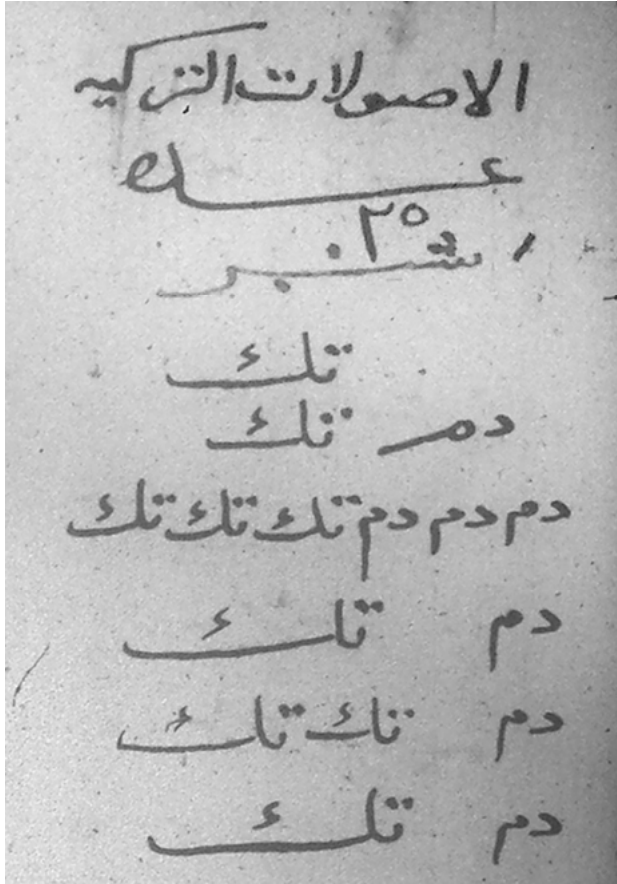 الاصولات التركيه
عدد
٢٥
١ شنبر
تك
دم تك
دم دم دم تك تك تك
دم تك
دم تك تك
دم تك